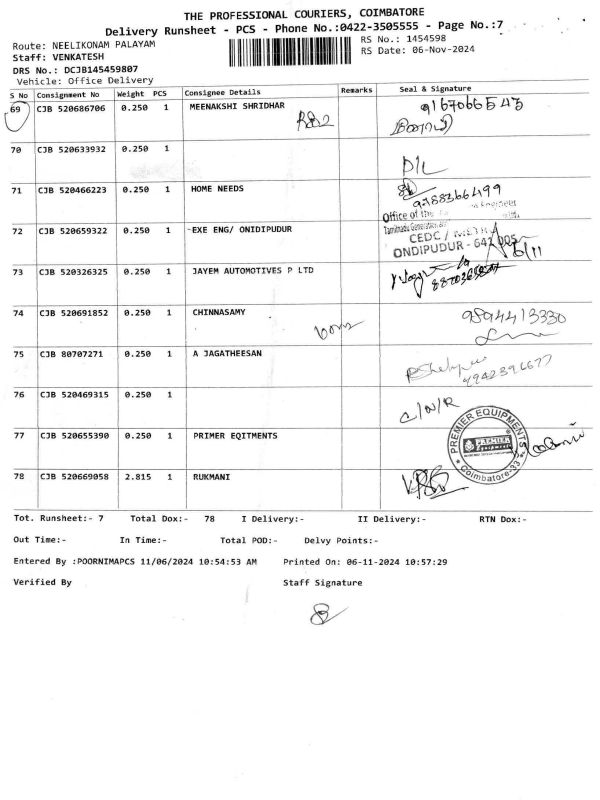 THE PROFESSIONAL COURIERS, COIMBATORE
Delivery Runsheet - PCS - Phone No.:0422-3505555 - Page No.:7
Route: NEELIKONAM PALAYAM
RS No.: 1454598
Staff: VENKATESH
RS Date: 06-Nov-2024
DRS No.: DCJB145459807
Vehicle: Office Delivery
S No Consignment No Weight PCS Consignee Details Remarks Seal & Signature
69 CJB 520686706 0.250 1 MEENAKSHI SHRIDHAR 9167066543
70 CJB 520633932 0.250 1 D/L
71 CJB 520466223 0.250 1 HOME NEEDS 9788366499
Office of the Engineer
72 CJB 520659322 0.250 1 EXE ENG/ ONIDIPUDUR
CEDC / METRO
ONDIPUDUR - 641 005
6/11
73 CJB 520326325 0.250 1 JAYEM AUTOMOTIVES P LTD
74 CJB 520691852 0.250 1 CHINNASAMY 9894413330
75 CJB 80707271 0.250 1 A JAGATHEESAN 9942396677
76 CJB 520469315 0.250 1 C/N/R
77 CJB 520655390 0.250 1 PRIMER EQITMENTS
PREMIER EQUIPMENTS
PREMIER
Coimbatore-33
78 CJB 520669058 2.815 1 RUKMANI
Tot. Runsheet:- 7 Total Dox:- 78 I Delivery:- II Delivery:- RTN Dox:-
Out Time:- In Time:- Total POD:- Delvy Points:-
Entered By :POORNIMAPCS 11/06/2024 10:54:53 AM Printed On: 06-11-2024 10:57:29
Verified By Staff Signature